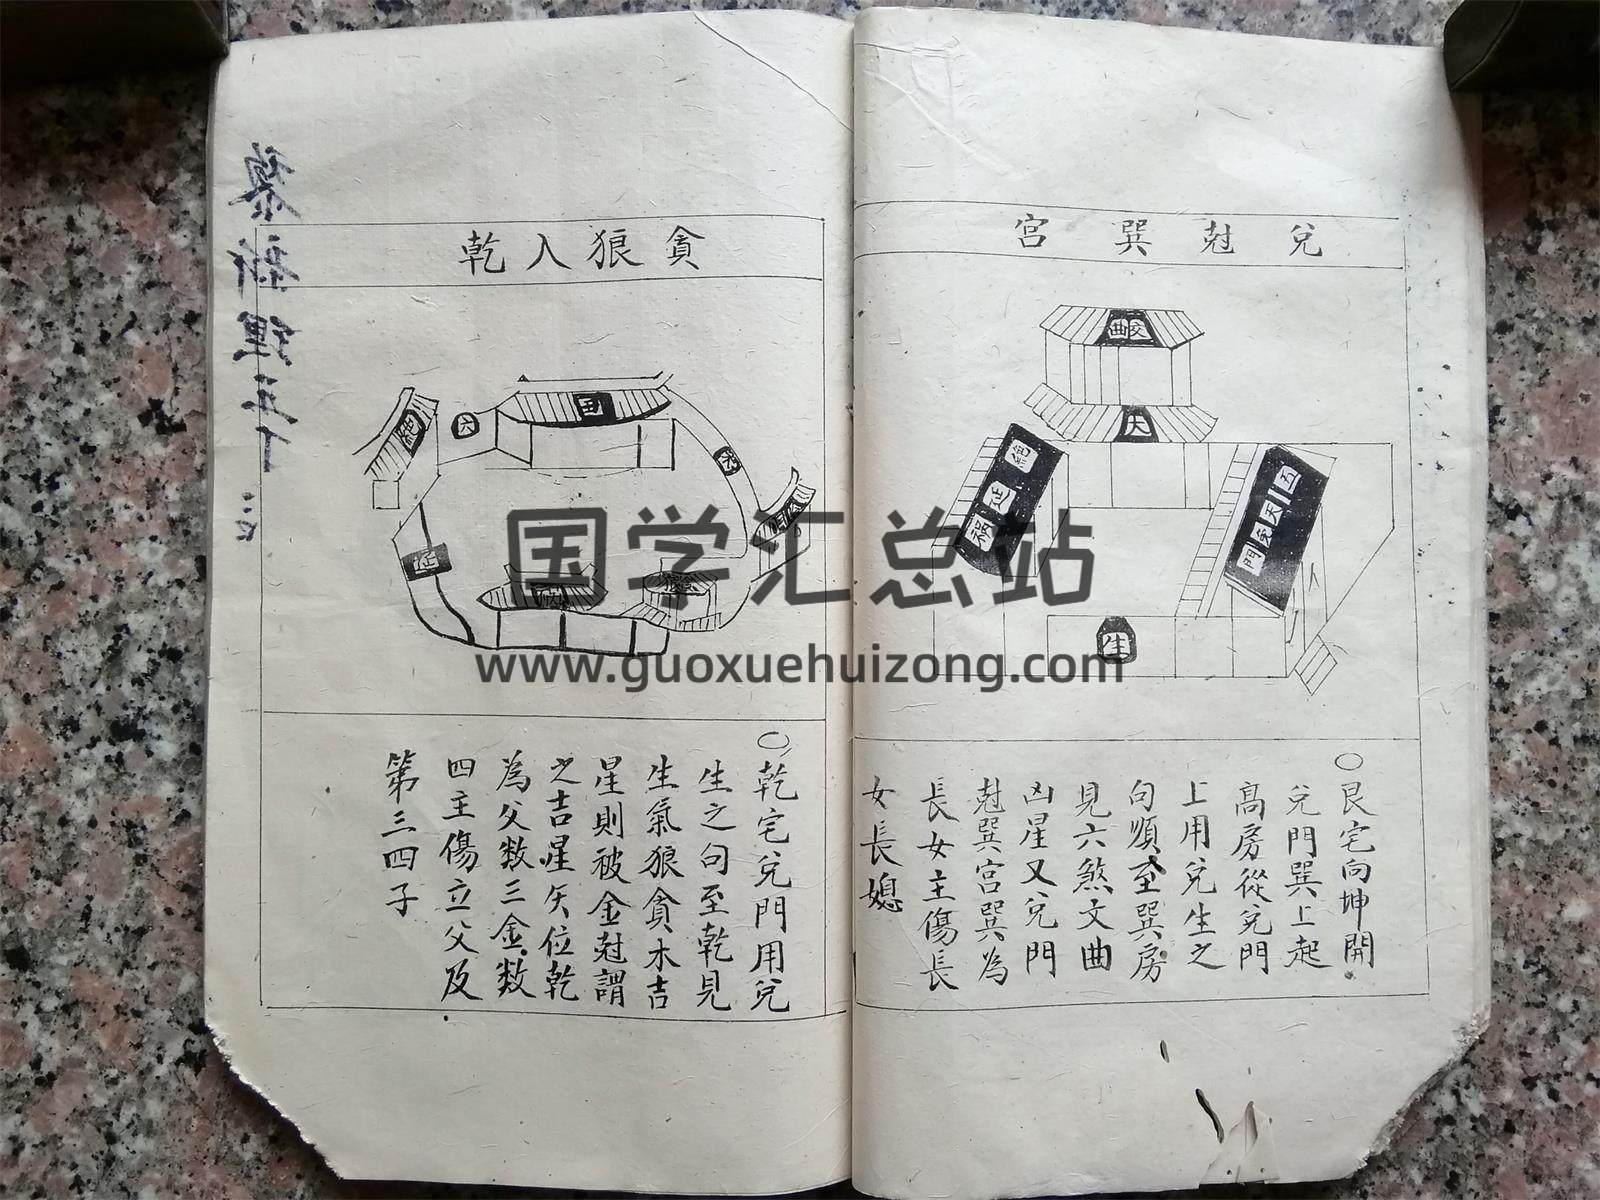 兌尅巽宮
文曲
天
絕
延
禍
五
天
門
生
〇艮宅向坤開
兌門巽上起
高房從兌門
上用兌生之
句順至巽房
見六煞文曲
凶星又兌門
尅巽宮巽為
長女主傷長
女長媳
貪狼入乾
五
六
延
〇乾宅兌門用兌
生之句至乾見
生氣狼貪木吉
星則被金尅謂
之吉星失位乾
為父数三金数
四主傷立父及
第三四子
国学汇总站
www.guoxuehuizong.com